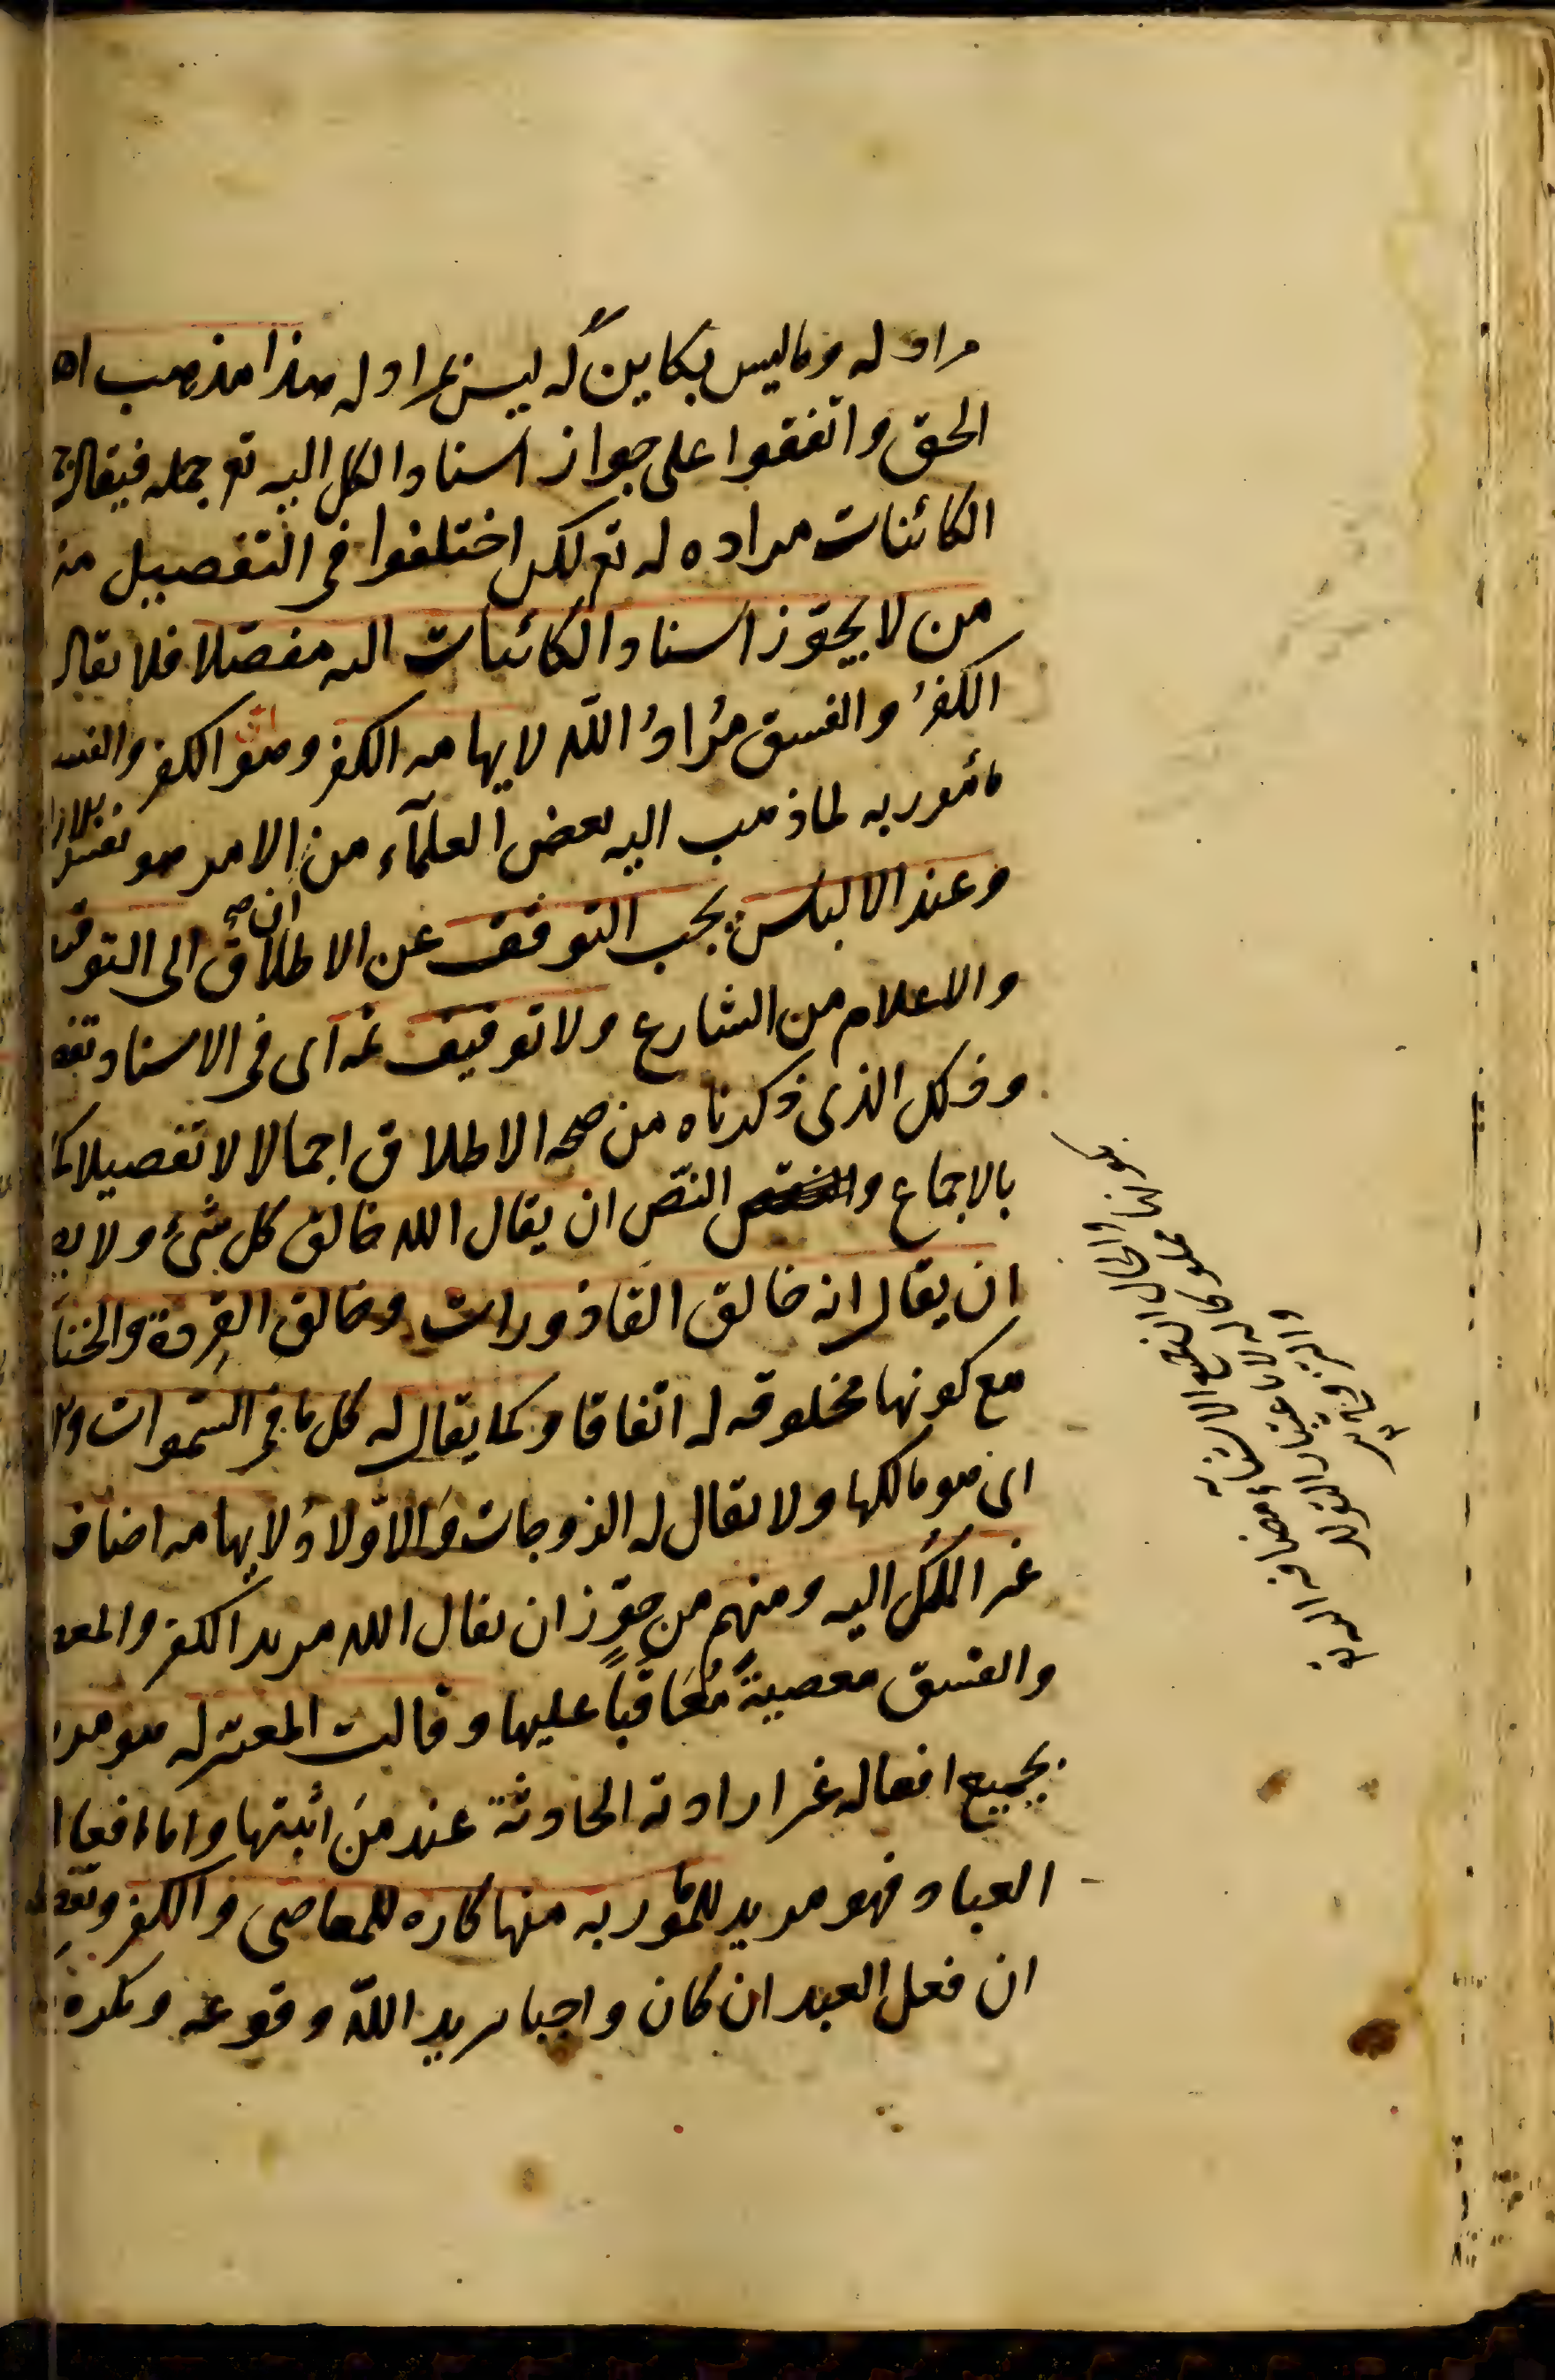 مراد له وماليس بكاين له ليس بمراد له هذا مذهب اه
الحق واتفقوا على جواز اسناد الكل اليه تع جملة فيقال
الكائنات مراده له تع لكن اختلفوا فى التفصيل منه
من لا يجوّز اسناد الكائنات اليه مفصّلا فلا يقال
الكفرُ والفسق مُرادُ اللّه لايهامه الكفر وهو انّ الكفر والفسـ
مأمور به لما ذهب اليه بعض العلمآء من انّ الامر هو نفس
وعند الالباس يجب التوقف عن الاطلاق الى التوقيـ
والاعلام من الشارع ولا توقيف ثمه اى فى الاسناد تفـ
وذلك الذى ذكرناه من صحه الاطلاق اجمالا لا تفصيلا كما
بالاجماع والنّص ان يقال اللّه خالق كل شئ ولا يصـ
ان يقال انه خالق القاذورات وخالق القِردة والخنا
مع كونها مخلوقه له اتفاقا وكما يقال له كل ما فى السّموات والا
اى هو مالكها ولا يقال له الزوجات وَالاَولادُ لايهامه اضافـ
غير الملك اليه ومنهم من جوّز ان يقال اللّه مريد الكفر والمعـ
والفسق معصيةً مُعَاقَباً عليها وقالت المعتزله هو مريد
بجميع افعاله غير ارادته الحادثة عند مَن أثبتها واما افعا
العباد فهو مريد للمأمور به منها كاره للمعاصى والكفر وتقـ
ان فعل العبد ان كان واجبا يريد اللّه وقوعه ويكره